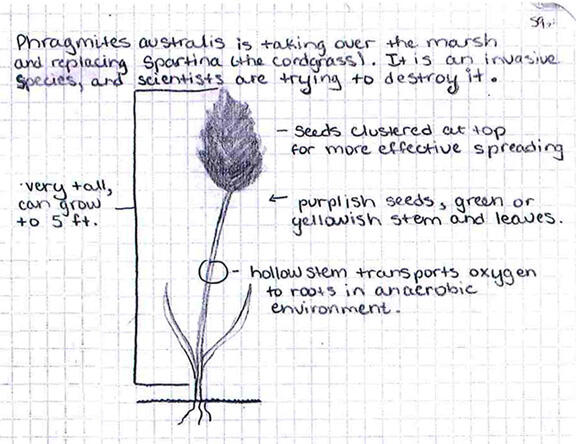 Phragmites australis is taking over the marsh
and replacing Spartina (the cordgrass). It is an invasive
species, and scientists are trying to destroy it.
- Seeds clustered at top
for more effective spreading
very tall,
can grow
to 5 ft.
← purplish seeds, green or
yellowish stem and leaves.
- hollow stem transports oxygen
to roots in anaerobic
environment.